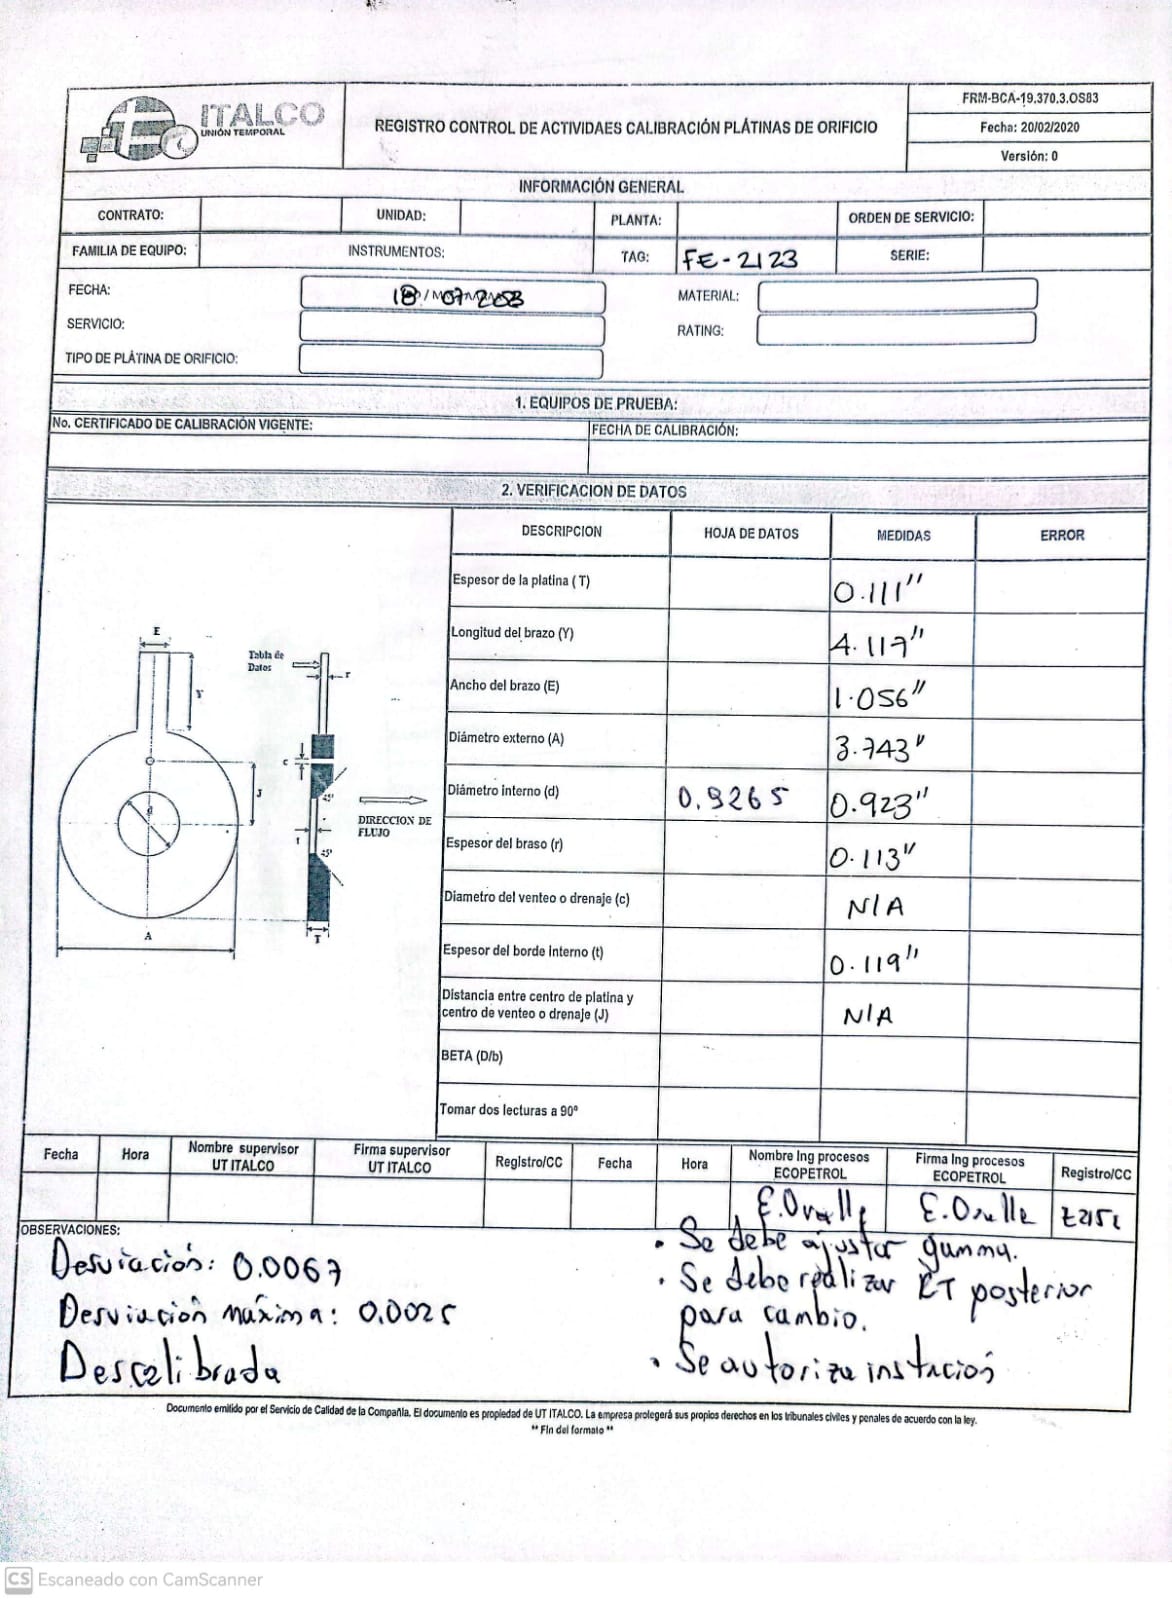 ITALCO
UNIÓN TEMPORAL
REGISTRO CONTROL DE ACTIVIDAES CALIBRACIÓN PLÁTINAS DE ORIFICIO
FRM-BCA-19.370.3.OS83
Fecha: 20/02/2020
Versión: 0
INFORMACIÓN GENERAL
CONTRATO: UNIDAD: PLANTA: ORDEN DE SERVICIO:
FAMILIA DE EQUIPO: INSTRUMENTOS: TAG: FE-2123 SERIE:
FECHA: 18 07 MATERIAL:
SERVICIO: RATING:
TIPO DE PLÁTINA DE ORIFICIO:
1. EQUIPOS DE PRUEBA:
No. CERTIFICADO DE CALIBRACIÓN VIGENTE: FECHA DE CALIBRACIÓN:
2. VERIFICACION DE DATOS
DESCRIPCION HOJA DE DATOS MEDIDAS ERROR
Espesor de la platina ( T) 0.111"
Longitud del brazo (Y) 4.117"
Ancho del brazo (E) 1.056"
Diámetro externo (A) 3.743"
Diámetro interno (d) 0.9265 0.923"
Espesor del braso (r) 0.113"
Diametro del venteo o drenaje (c) N/A
Espesor del borde interno (t) 0.119"
Distancia entre centro de platina y
centro de venteo o drenaje (J) N/A
BETA (D/b)
Tomar dos lecturas a 90º
E
Y
Tabla de
Datos
r
c
J
d
45º
DIRECCION DE
FLUJO
t
45º
A
T
Fecha Hora Nombre supervisor
UT ITALCO Firma supervisor
UT ITALCO Registro/CC Fecha Hora Nombre Ing procesos
ECOPETROL Firma Ing procesos
ECOPETROL Registro/CC
E. Ovalle E. Ovalle
OBSERVACIONES:
Desviación: 0.0067
Desviación máxima: 0.0025
Descalibrada
• Se debe ajustar gamma.
• Se debe realizar RT posterior
para cambio.
• Se autoriza instación
Documento emitido por el Servicio de Calidad de la Compañía. El documento es propiedad de UT ITALCO. La empresa protegerá sus propios derechos en los tribunales civiles y penales de acuerdo con la ley.
** Fin del formato **
CS Escaneado con CamScanner